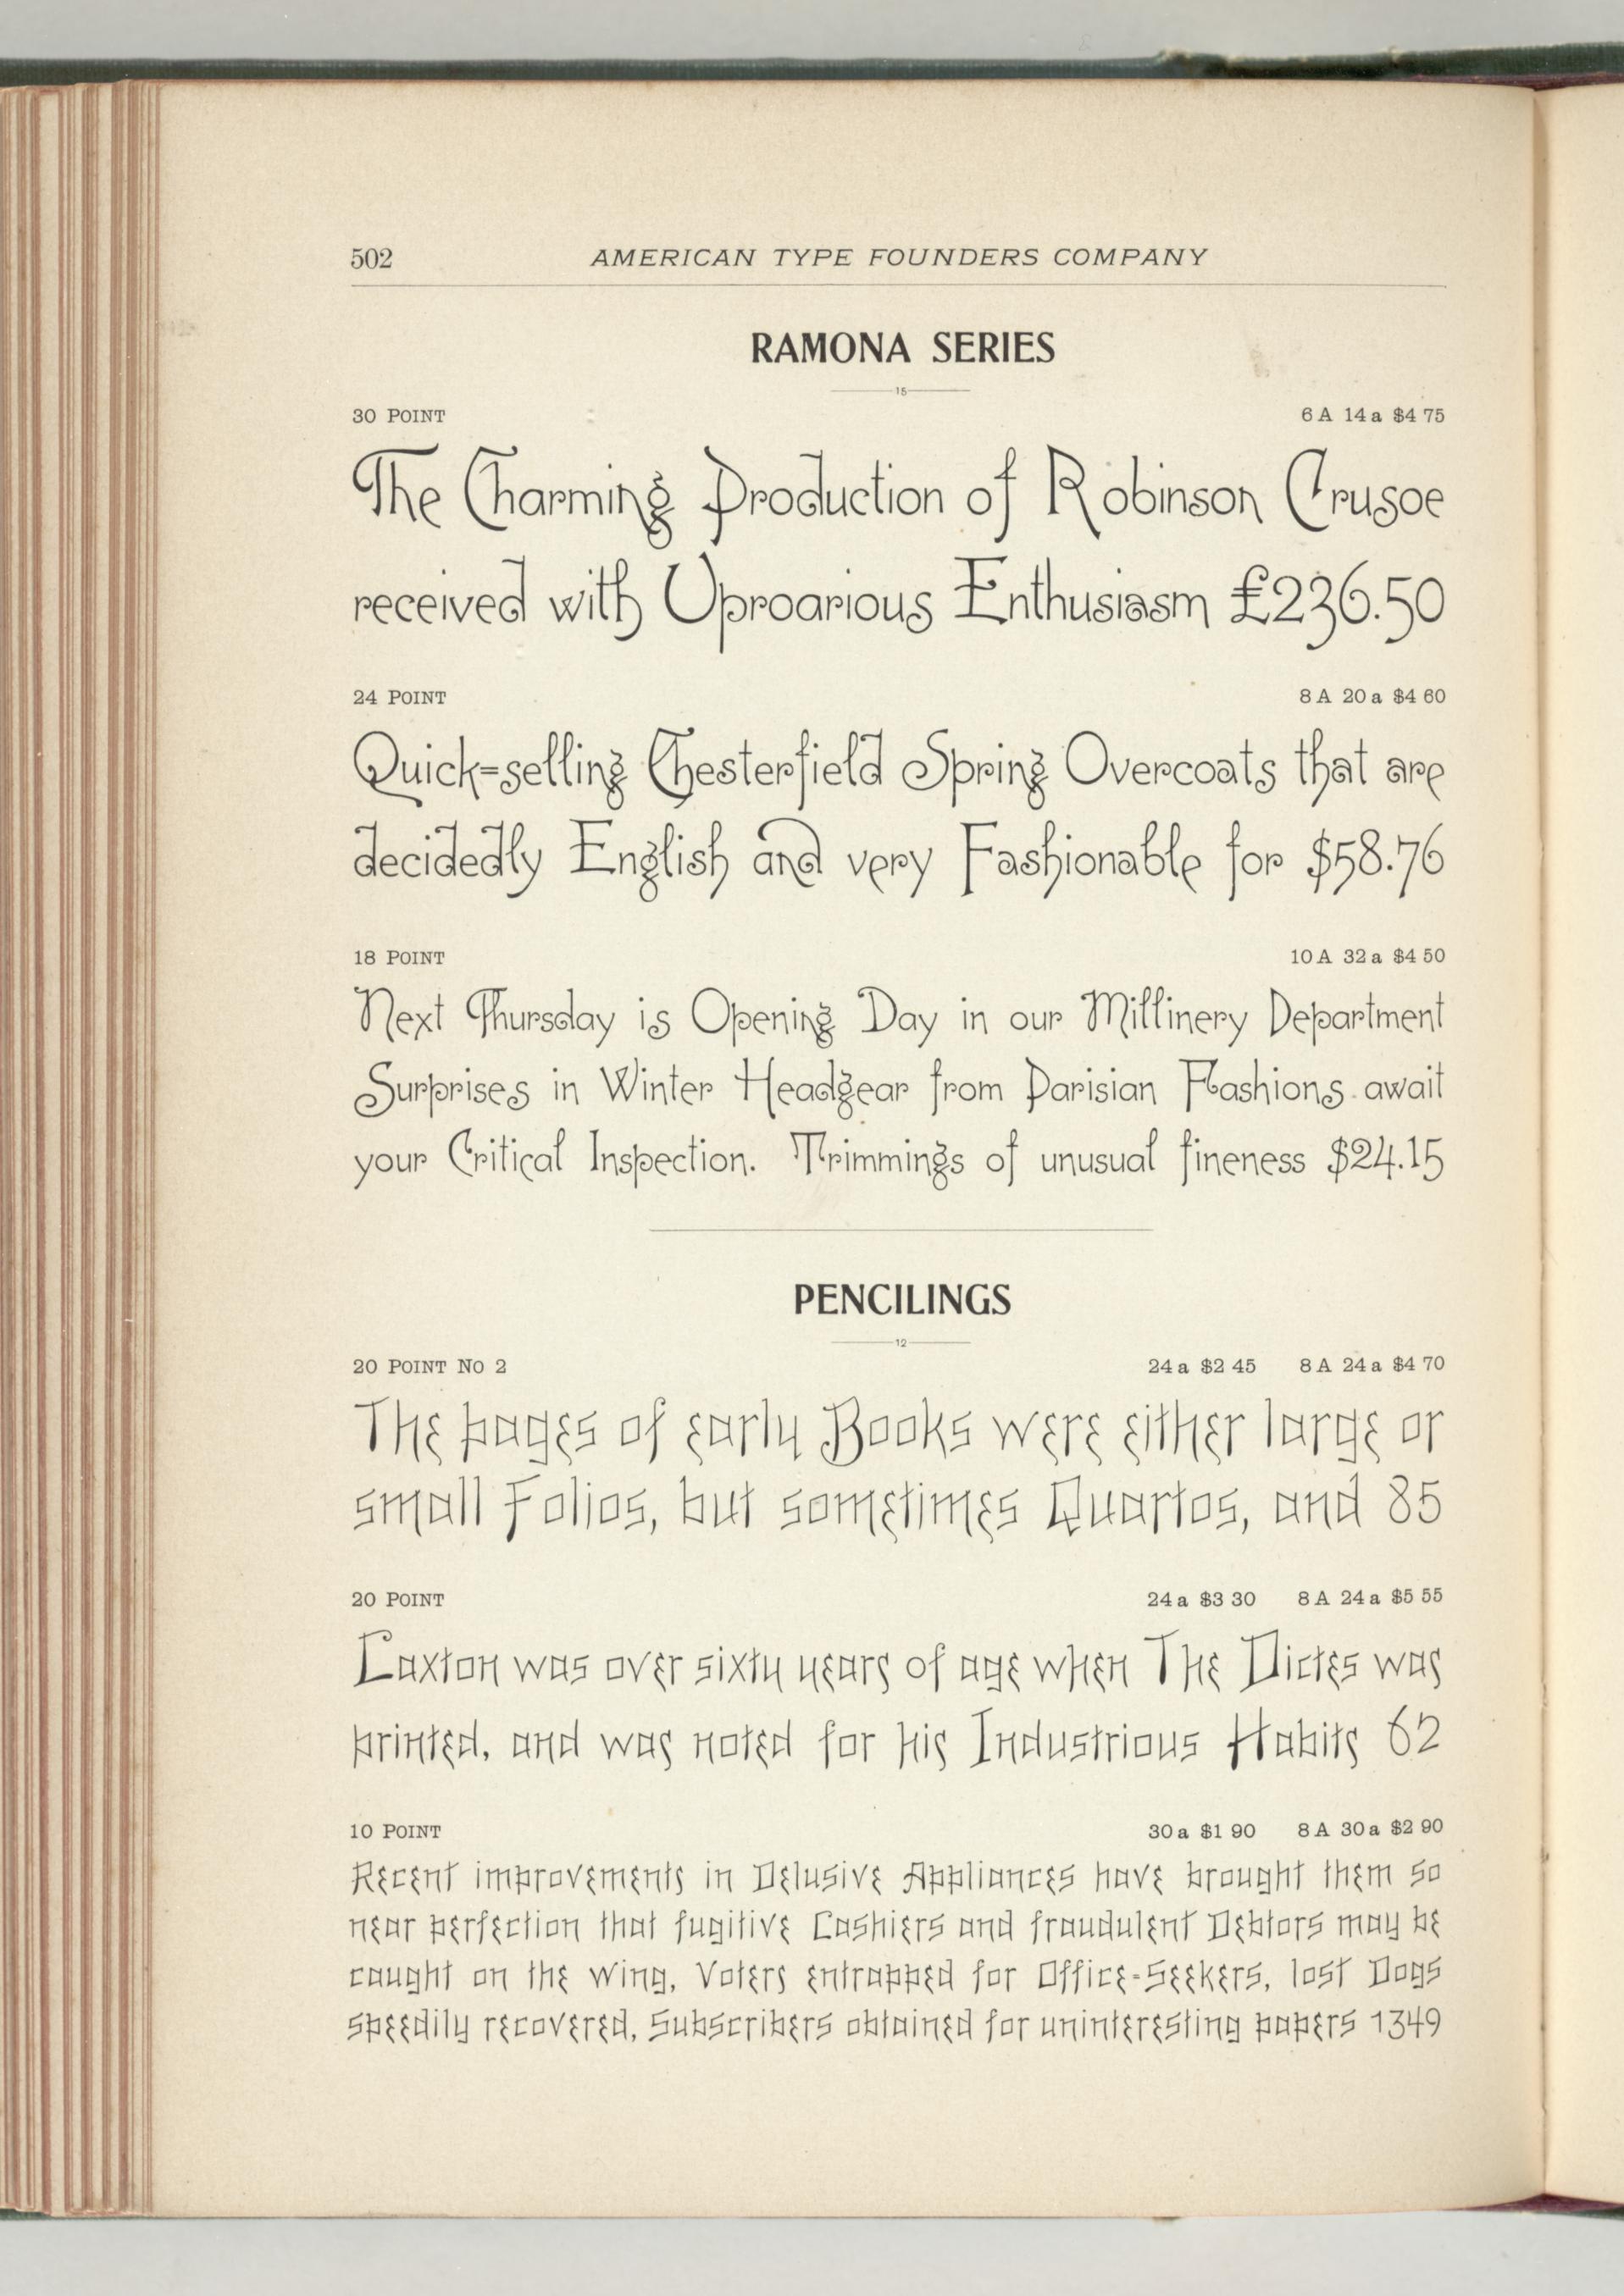 502 AMERICAN TYPE FOUNDERS COMPANY
RAMONA SERIES
15
30 POINT 6 A 14 a $4 75
The Charming Production of Robinson Crusoe
received with Uproarious Enthusiasm £236.50
24 POINT 8 A 20 a $4 60
Quick=selling Chesterfield Spring Overcoats that are
decidedly English and very Fashionable for $58.76
18 POINT 10 A 32 a $4 50
Next Thursday is Opening Day in our Millinery Department
Surprises in Winter Headgear from Parisian Flashions await
your Critical Inspection. Trimmings of unusual fineness $24.15
PENCILINGS
12
20 POINT NO 2 24 a $2 45 8 A 24 a $4 70
The pages of early Books were either large or
small Folios, but sometimes Quartos, and 85
20 POINT 24 a $3 30 8 A 24 a $5 55
Caxton was over sixty years of age when The Dictes was
printed, and was noted for his Industrious Habits 62
10 POINT 30 a $1 90 8 A 30 a $2 90
Recent improvements in Delusive Appliances have brought them so
near perfection that fugitive Cashiers and fraudulent Debtors may be
caught on the wing, Voters entrapped for Office-Seekers, lost Dogs
speedily recovered, Subscribers obtained for uninteresting papers 1349